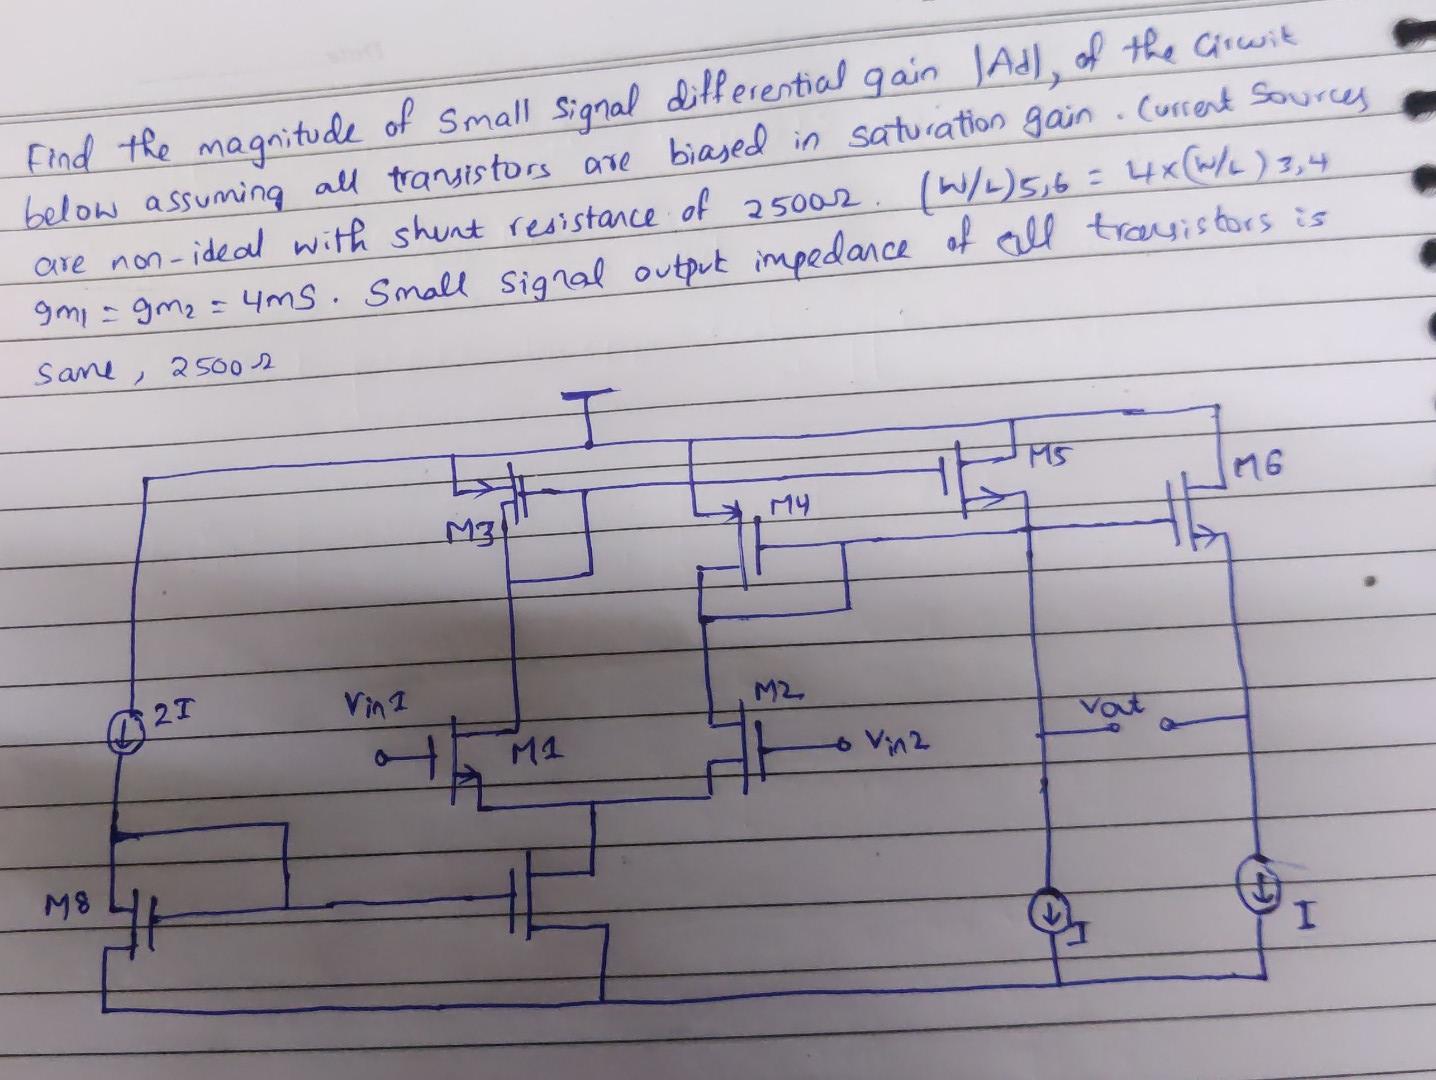 Find the magnitude of small signal differential gain |Ad|, of the circuit
below assuming all transistors are biased in saturation gain. Current Sources
are non-ideal with shunt resistance of 2500Ω. (W/L)5,6 = 4×(W/L)3,4
gm1 = gm2 = 4mS. Small signal output impedance of all transistors is
same, 2500Ω
M5
M6
M3
M4
2I
Vin1
M1
M2
Vin2
Vout
M8
I
I